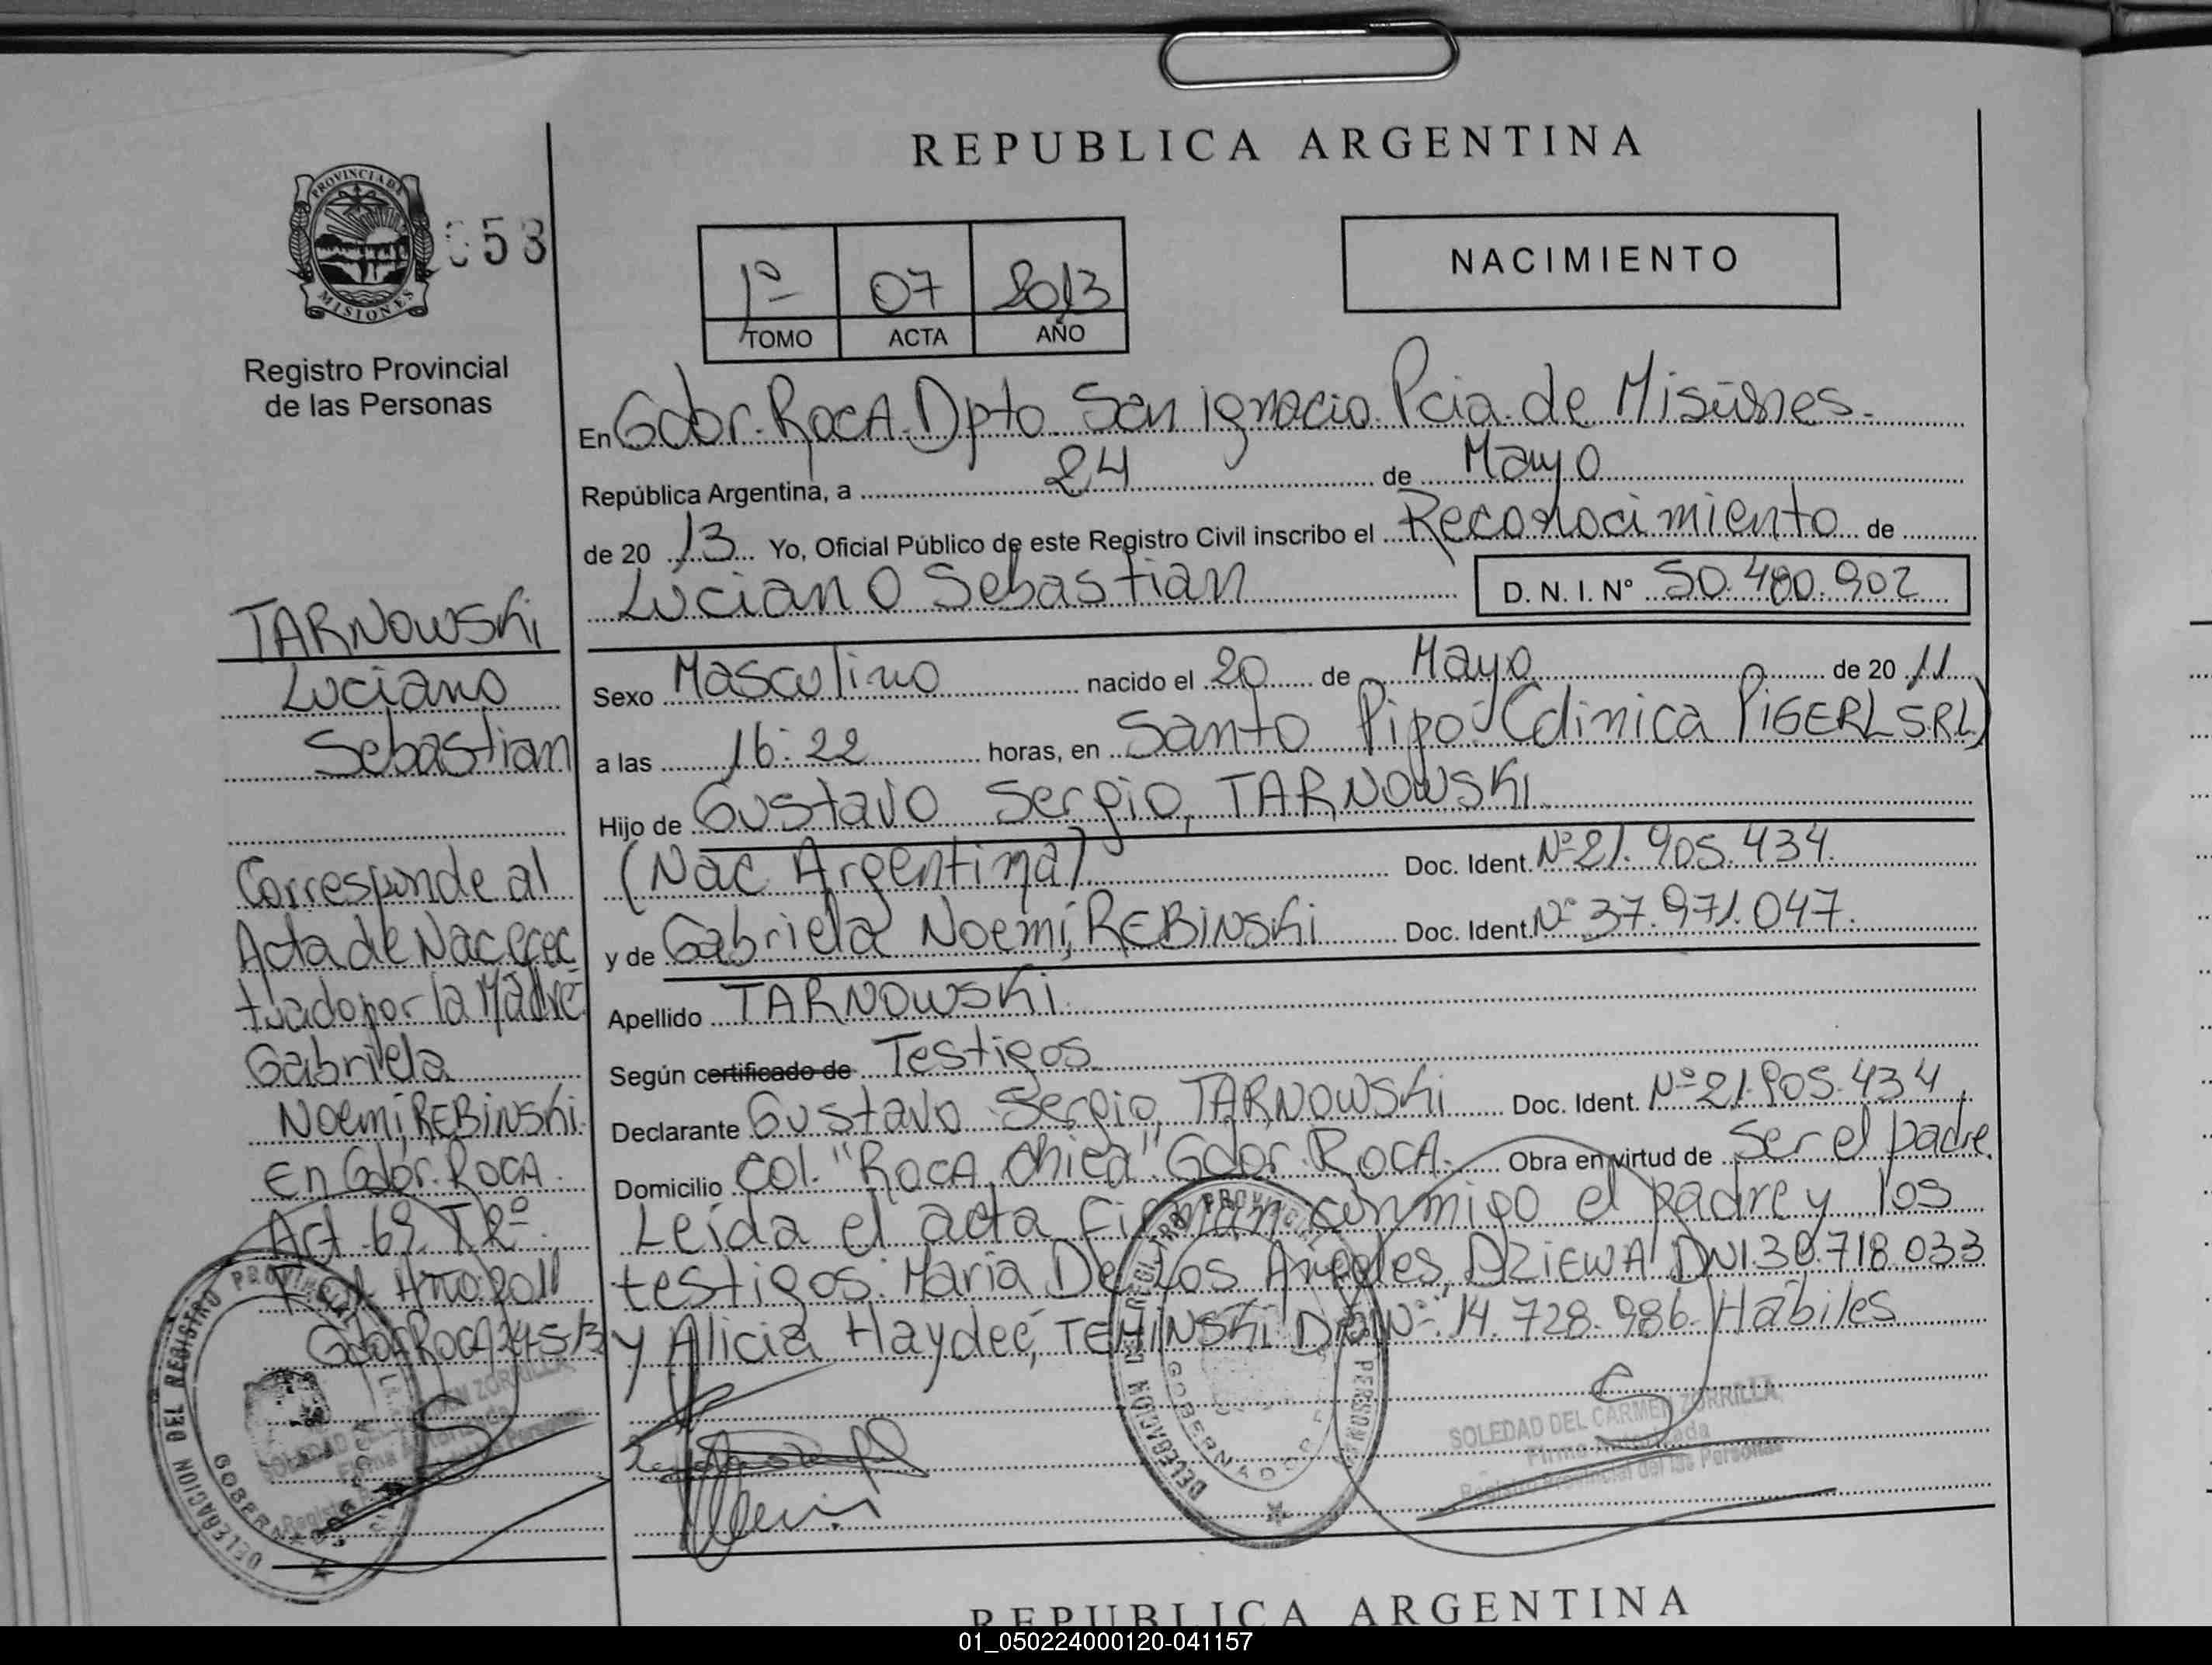 REPUBLICA ARGENTINA
PROVINCIA DE
MISIONES
058
Registro Provincial
de las Personas
1º 07 2013
TOMO ACTA AÑO
NACIMIENTO
En Gdor. ROCA. Dpto. San Ignacio. Pcia. de Misiones.
República Argentina, a 24 de Mayo
de 20 13 Yo, Oficial Público de este Registro Civil inscribo el Reconocimiento de
Luciano Sebastian D. N. I. Nº 50.400.902
Sexo Masculino nacido el 20 de Mayo de 20 11
a las 16:22 horas, en Santo Pipo: (Clinica PIGERL S.R.L)
Hijo de Gustavo Sergio, TARNOWSKi
(Nac. Argentina) Doc. Ident. Nº 21.905.434.
y de Gabriela Noemi, REBiNSKi Doc. Ident. Nº 37.971.047.
Apellido TARNOWSKi
Según certificado de Testigos
Declarante Gustavo Sergio, TARNOWSKi Doc. Ident. Nº 21.905.434
Domicilio Col. "ROCA Chica" Gdor. ROCA. Obra en virtud de Ser el padre
Leida el acta firman conmigo el padre y los
testigos: Maria De Los Angeles, DZiEWA DNI 30.718.033
y Alicia Haydeé, DNI Nº 14.728.986. Hábiles
TARNOWSKi
Luciano
Sebastian
Corresponde al
Acta de Nac efec
tuado por la Madre
Gabriela
Noemi, REBiNSKi
En Gdor. ROCA.
Act. 69 T 2º
Año 2011
Gdor ROCA 24-5-13
DELEGACION DEL REGISTRO PROVINCIAL
GOBERNADOR ROCA
SOLEDAD DEL CARMEN ZORRILLA
Firma Autorizada
Registro Provincial de las Personas
SOLEDAD DEL CARMEN ZORRILLA
Firma Autorizada
Registro Provincial de las Personas
REPUBLICA ARGENTINA
01_050224000120-041157